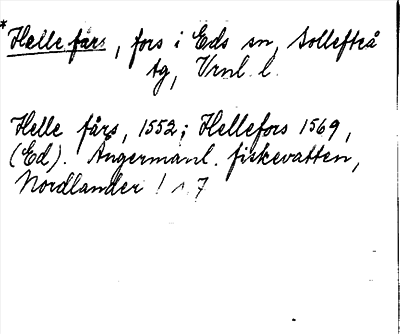 *Helle fårs, fors i Eds sn, Sollefteå
tg, Vrnl. l.
Helle fårs, 1552; Hellefors 1569,
(Ed). Ångermanl. fiskevatten,
Nordlander